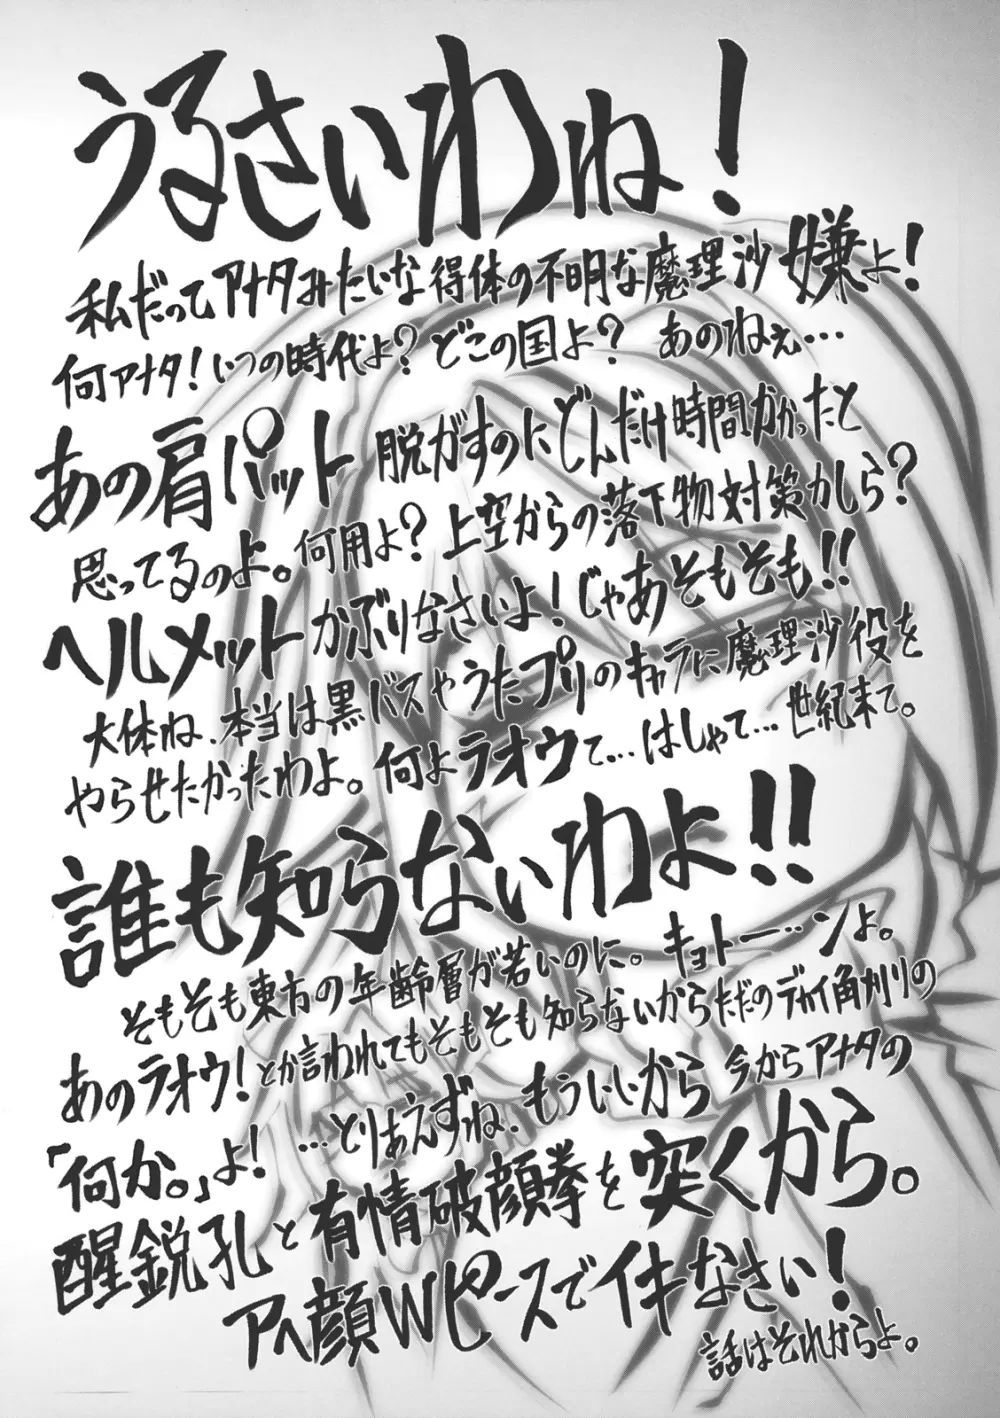 うるさいわね！
私だってアナタみたいな得体の不明な魔理沙嫌よ！
何アナタ！いつの時代よ？どこの国よ？ あのねぇ…
あの肩パット脱がすのにどんだけ時間かかったと
思ってるのよ。何用よ？上空からの落下物対策かしら？
ヘルメットかぶりなさいよ！じゃあそもそも！！
大体ね、本当は黒バスやうたプリのキャラに魔理沙役を
やらせたかったわよ。何よラオウて…はしゃて…世紀末て。
誰も知らないわよ！！
そもそも東方の年齢層が若いのに。キョトーンよ。
あのラオウ！とか言われてもそもそも知らないからただのデカイ角刈りの
「何か。」よ！…とりあえずね、もういいから今からアナタの
醒鋭孔と有情破顔拳を突くから。
アヘ顔Wピースでイキなさい！
話はそれからよ。